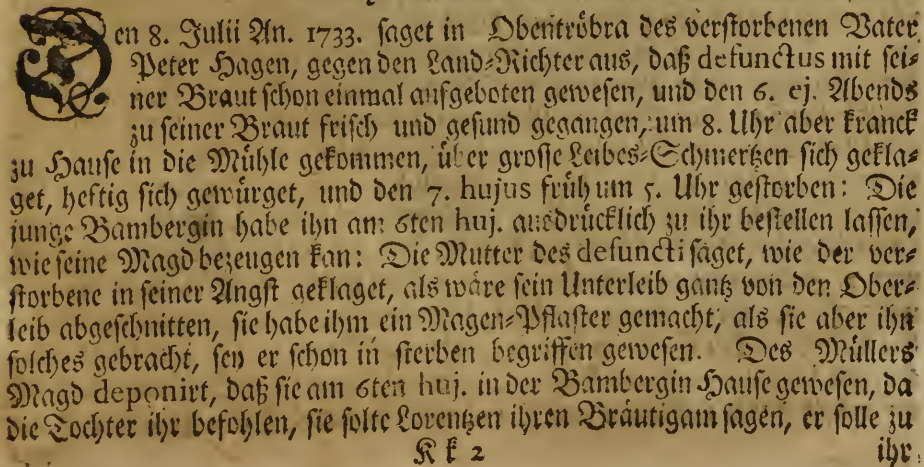 Den 8. Julii An. 1733. saget in Obentröbra des verstorbenen Vater
Peter Hagen, gegen den Land-Richter aus, daß defunctus mit sei-
ner Braut schon einmal aufgeboten gewesen, und den 6. ej. Abends
zu seiner Braut frisch und gesund gegangen, um 8. Uhr aber kranck
zu Hause in die Mühle gekommen, über grosse Leibes-Schmertzen sich gekla-
get, heftig sich gewürget, und den 7. hujus früh um 5. Uhr gestorben: Die
junge Bambergin habe ihn am 6ten huj. ausdrücklich zu ihr bestellen lassen,
wie seine Magd bezeugen kan: Die Mutter des defuncti saget, wie der ver-
storbene in seiner Angst geklaget, als wäre sein Unterleib gantz von den Ober-
leib abgeschnitten, sie habe ihm ein Magen-Pflaster gemacht, als sie aber ihn
solches gebracht, sey er schon in sterben begriffen gewesen. Des Müllers
Magd deponirt, daß sie am 6ten huj. in der Bambergin Hause gewesen, da
die Tochter ihr befohlen, sie solte Lorentzen ihren Bräutigam sagen, er solle zu
K k 2 ihr